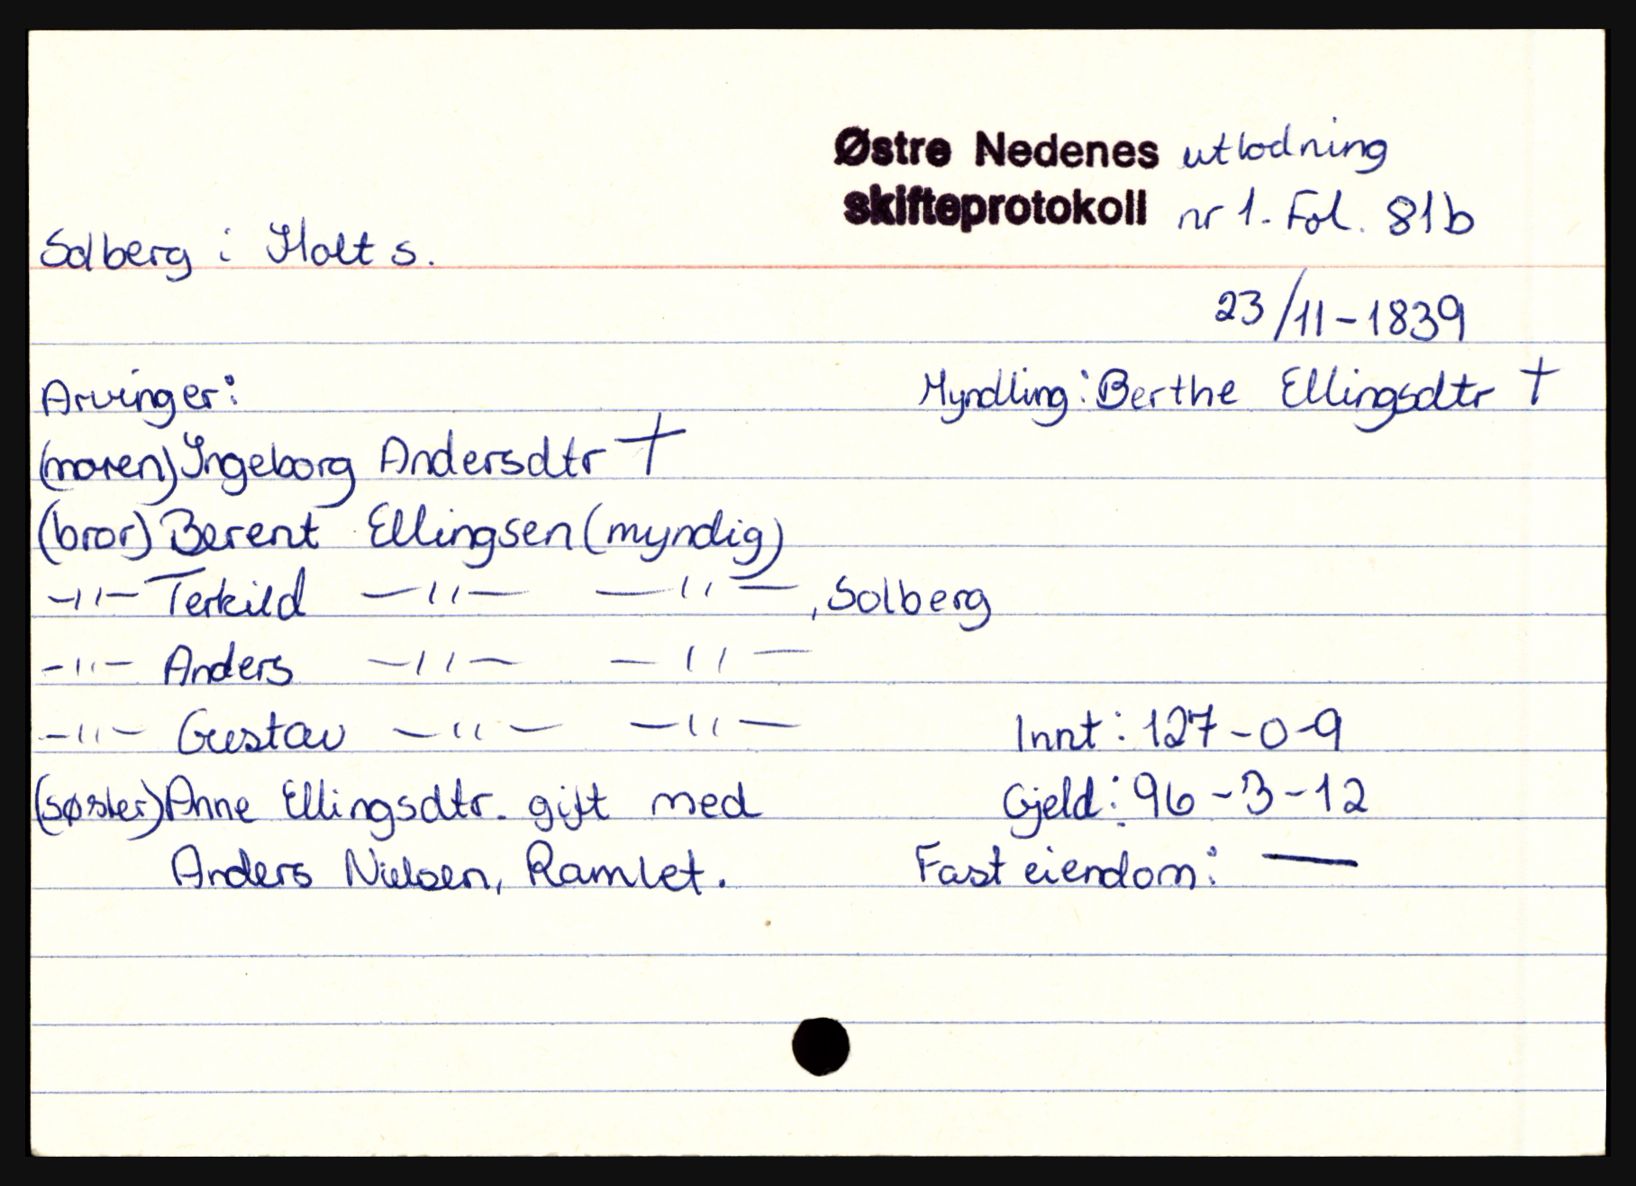 Østre Nedenes utlodning
skifteprotokoll nr 1. Fol. 81b
Solberg i Holt s.
23/11-1839
Arvinger: Myndling: Berthe Ellingsdtr †
(moren) Ingeborg Andersdtr †
(bror) Berent Ellingsen (myndig)
-"- Terkild -"- -"-, Solberg
-"- Anders -"- -"-
-"- Gustav -"- -"- Innt: 127-0-9
(søster) Anne Ellingsdtr. gift med Gjeld: 96-3-12
Anders Nielsen, Ramlet. Fast eiendom: —